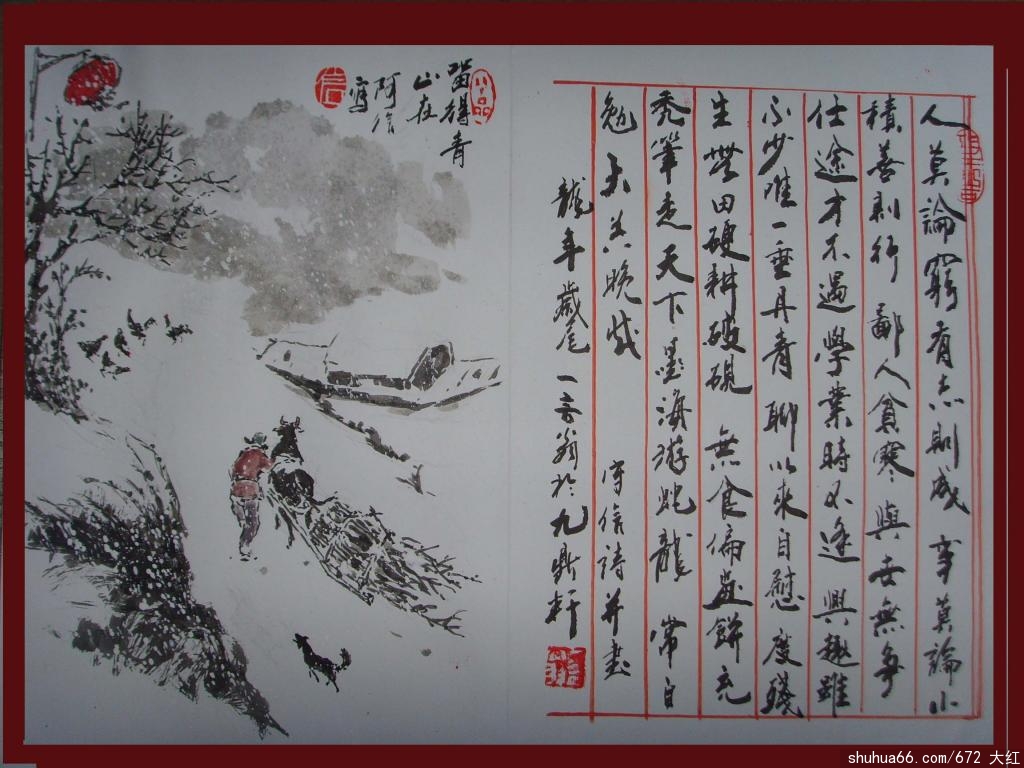 人莫論窮有志則成 事莫論小
積善則行 鄙人貧寒與世無爭
仕途才不遇學業時不逢 興趣雖
不少唯一垂丹青 聊以來自慰 度殘
生無田硬耕破硯 無食偏畫餅充
禿筆走天下墨海游蛇龍 常自
勉 大美晚成 守信詩并書
龍年歲尾 一言翁於九鼎軒
留得青
山在
阿信
寫
shuhua66.com/672 大红